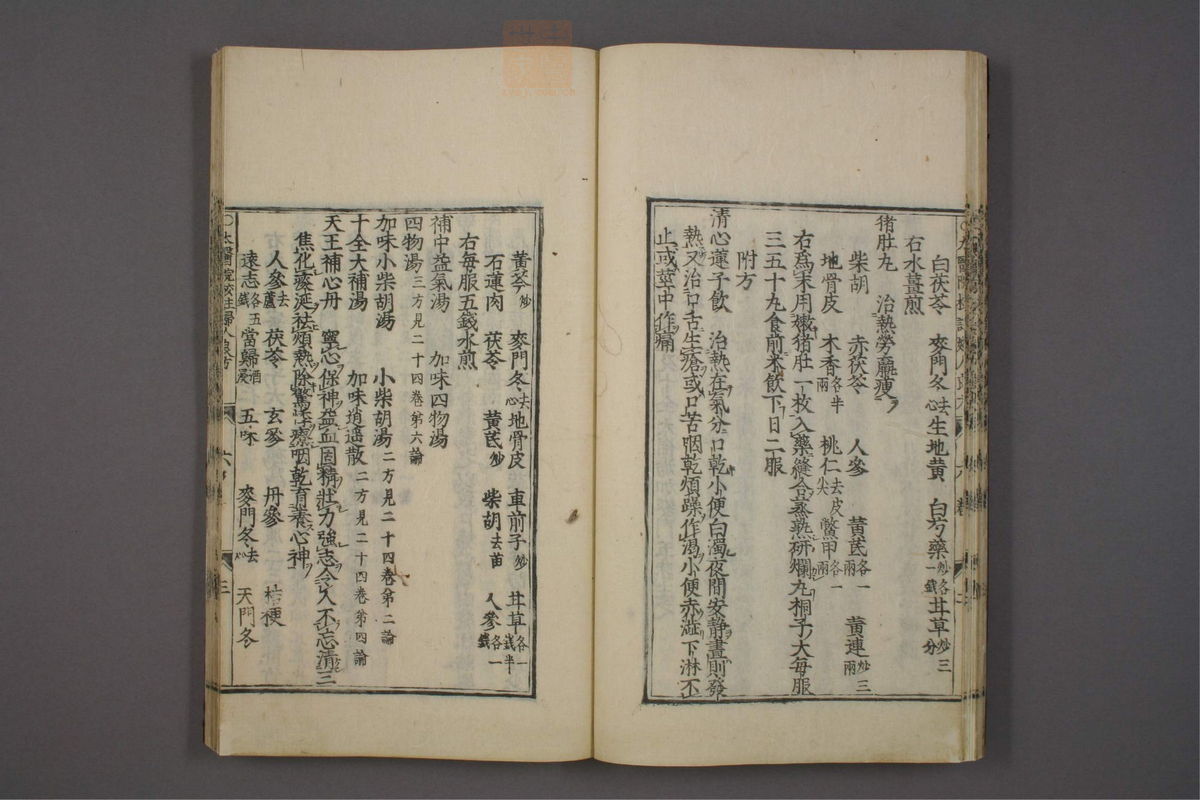 白茯苓 麥門冬去心 生地黄 白芍藥炒各一錢 甘草炒三分
右水薑煎
猪肚丸 治熱勞羸瘦
柴胡 赤茯苓 人參 黄芪各一兩 黄連炒三兩
地骨皮 木香各半兩 桃仁去皮尖 鱉甲各一兩
右爲末用嫩猪肚一枚入藥縫合蒸熟研爛丸桐子大每服
三五十丸食前米飲下日二服
附方
清心蓮子飲 治熱在氣分口乾小便白濁夜間安静晝則發
熱又治口舌生瘡或口苦咽乾煩躁作渴小便赤澁下淋不
止或莖中作痛
黄芩炒 麥門冬去心 地骨皮 車前子炒 甘草各一錢半
石蓮肉 茯苓 黄芪炒 柴胡去苗 人參各一錢
右每服五錢水煎
補中益氣湯 加味四物湯
四物湯三方見二十四卷第六論
加味小柴胡湯 小柴胡湯二方見二十四卷第二論
十全大補湯 加味逍遥散二方見二十四卷第四論
天王補心丹 寧心保神益血固精壯力強志令人不忘清三
焦化痰涎祛煩熱除驚悸療咽乾育養心神
人參去蘆 茯苓 玄參 丹參 桔梗
遠志各五錢 當歸酒浸 五味 麥門冬去心 天門冬
○太醫院校註婦人良方 六卷 三